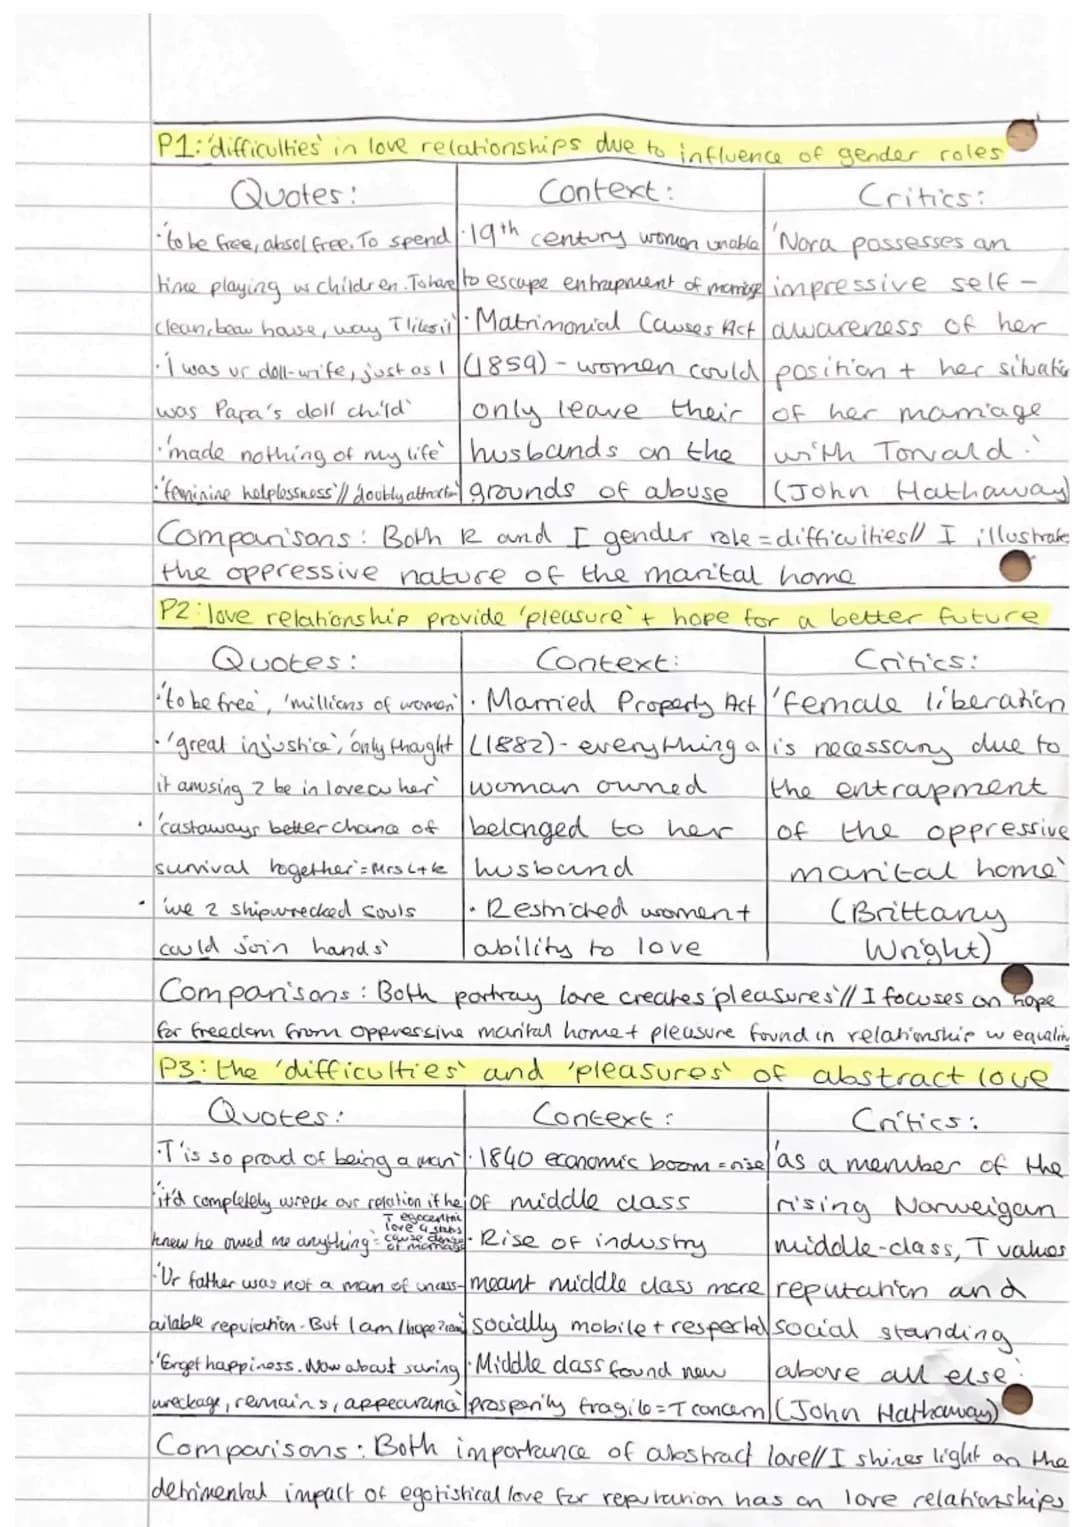 P1: 'difficulties' in love relationships due to influence of gender roles
Quotes:
· 'to be free, absol free. To spend
time playing w children. To have
clean, beau house, way T likes it'
· 'I was ur doll-wife, just as I
was Papa's doll child'
· 'made nothing of my life'
· 'feminine helplessness' // doubly attractive
Context:
· 19th century women unable
to escape entrapment of marriage
· Matrimonial Causes Act
(1859) - women could
only leave their
husbands on the
grounds of abuse
Critics:
'Nora possesses an
impressive self-
awareness of her
position + her situatio
of her marriage
with Torvald.'
(John Hathaway)
Comparisons: Both R and I gender role = difficulties // I illustrate
the oppressive nature of the marital home
P2: love relationship provide 'pleasure' + hope for a better future
Quotes:
· 'to be free', 'millions of women'
· 'great injustice', 'only thought
it amusing 2 be in love w her'
· 'castaways better chance of
survival together' = Mrs L + K
· 'we 2 shipwrecked souls
could join hands'
Context:
· Married Property Act
(1882) - everything a
woman owned
belonged to her
husband
· Restricted women +
ability to love
Critics:
'female liberation
is necessary due to
the entrapment
of the oppressive
marital home'
(Brittany
Wright)
Comparisons: Both portray love creates 'pleasures' // I focuses on hope
for freedom from oppressive marital home + pleasure found in relationship w equality
P3: the 'difficulties' and 'pleasures' of abstract love
Quotes:
· T 'is so proud of being a man'
'it'd completely wreck our relation if he
knew he owed me anything' = T egocentric
love 4 status
cause
of marriage
· 'Ur father was not a man of unass-
ailable reputation. But I am / hope 2 remain
· 'Forget happiness. Now about saving
wreckage, remains, appearance'
Context:
· 1840 economic boom = rise
of middle class
· Rise of industry
meant middle class more
socially mobile + respected
· Middle class found new
prosperity fragile = T concern
Critics:
'as a member of the
rising Norweigan
middle-class, T values
reputation and
social standing
above all else.'
(John Hathaway)
Comparisons: Both importance of abstract love // I shines light on the
detrimental impact of egotistical love for reputation has on love relationships